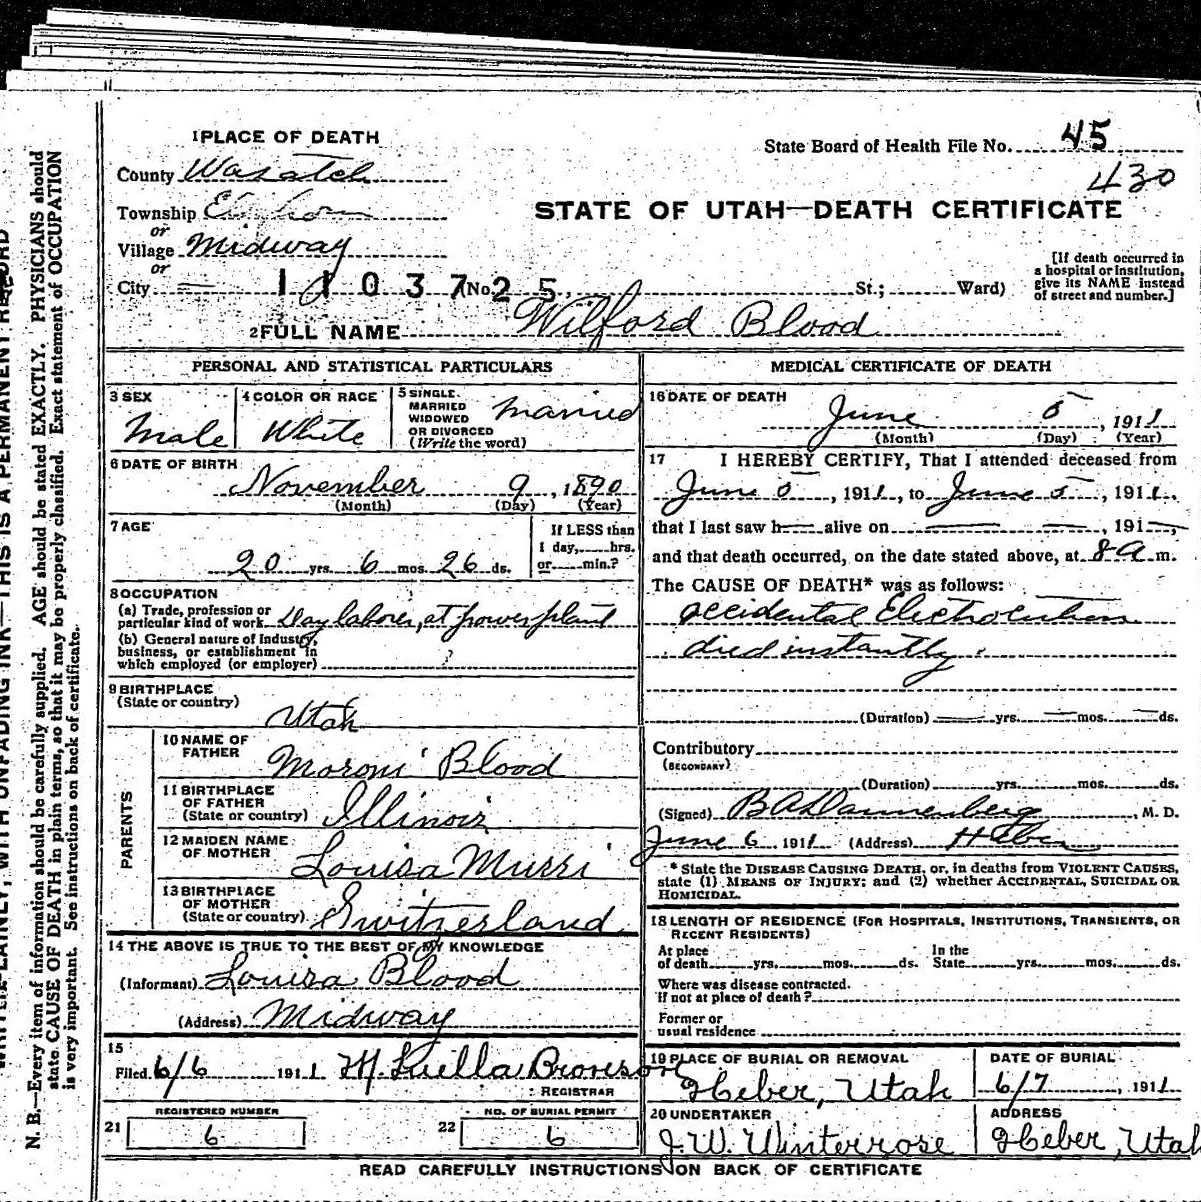 1 PLACE OF DEATH
State Board of Health File No. 45
430
County Wasatch
Township
STATE OF UTAH—DEATH CERTIFICATE
or
Village Midway
or
[If death occurred in a hospital or institution, give its NAME instead of street and number.]
City 11037 No. 25 St.; Ward)
2 FULL NAME Wilford Blood
PERSONAL AND STATISTICAL PARTICULARS
3 SEX
Male
4 COLOR OR RACE
White
5 SINGLE.
MARRIED
WIDOWED
OR DIVORCED
(Write the word)
Married
6 DATE OF BIRTH
November 9, 1890
(Month) (Day) (Year)
7 AGE
20 yrs. 6 mos. 26 ds.
If LESS than
1 day, hrs.
or min.?
8 OCCUPATION
(a) Trade, profession or
particular kind of work Day laborer, at power plant
(b) General nature of industry,
business, or establishment in
which employed (or employer)
9 BIRTHPLACE
(State or country)
Utah
PARENTS
10 NAME OF
FATHER
Moroni Blood
11 BIRTHPLACE
OF FATHER
(State or country) Illinois
12 MAIDEN NAME
OF MOTHER
Louisa Murri
13 BIRTHPLACE
OF MOTHER
(State or country) Switzerland
14 THE ABOVE IS TRUE TO THE BEST OF MY KNOWLEDGE
(Informant) Louisa Blood
(Address) Midway
15
Filed 6/6 1911 M. Luella Bronson
REGISTRAR
REGISTERED NUMBER
21 6
NO. OF BURIAL PERMIT
22 6
MEDICAL CERTIFICATE OF DEATH
16 DATE OF DEATH
June 5, 1911
(Month) (Day) (Year)
17 I HEREBY CERTIFY, That I attended deceased from
June 5, 1911, to June 5, 1911,
that I last saw h alive on , 191 ,
and that death occurred, on the date stated above, at 8 a m.
The CAUSE OF DEATH* was as follows:
accidental Electrocution
died instantly.
(Duration) yrs. mos. ds.
Contributory
(SECONDARY)
(Duration) yrs. mos. ds.
(Signed) Dannenberg, M. D.
June 6 1911 (Address) Heber
* State the DISEASE CAUSING DEATH, or, in deaths from VIOLENT CAUSES,
state (1) MEANS OF INJURY; and (2) whether ACCIDENTAL, SUICIDAL OR
HOMICIDAL.
18 LENGTH OF RESIDENCE (FOR HOSPITALS, INSTITUTIONS, TRANSIENTS, OR
RECENT RESIDENTS)
At place
of death yrs. mos. ds.
In the
State yrs. mos. ds.
Where was disease contracted.
If not at place of death?
Former or
usual residence
19 PLACE OF BURIAL OR REMOVAL
Heber, Utah
DATE OF BURIAL
6/7, 1911
20 UNDERTAKER
J. W. Winterrose
ADDRESS
Heber, Utah
READ CAREFULLY INSTRUCTIONS ON BACK OF CERTIFICATE
N. B.—Every item of information should be carefully supplied. AGE should be stated EXACTLY. PHYSICIANS should
state CAUSE OF DEATH in plain terms, so that it may be properly classified. Exact statement of OCCUPATION
is very important. See instructions on back of certificate.
WITH UNFADING INK—THIS IS A PERMANENT RECORD